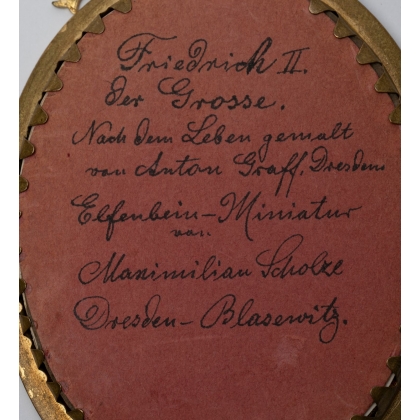 Friedrich II.
der Grosse.
Nach dem Leben gemalt
von Anton Graff, Dresden
Elfenbein-Miniatur
von
Maximilian Scholze
Dresden-Blasewitz.